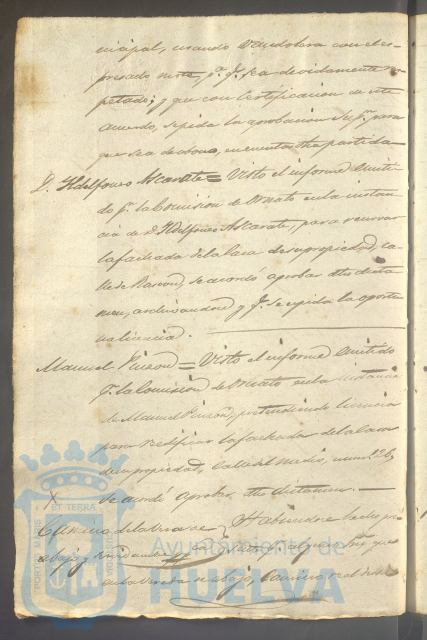 nicipal, usando bandolera con el es-
presado mote, pª. q. sea devidamente res-
petado; y que con Certificacion de este
acuerdo, se pida la aprobacion Supr. para
que sea de abono, en cuentas, dha partida
D. Yldelfonso Ascarate = Visto el informe emiti-
do pr. la Comision de Ornato en la instan-
cia de D. Yldelfonso Ascarate, para renovar
la fachada de la Casa de su propiedad, ca-
lle de Rascon, se acordó aprobar dho dicta-
men, archivandose y q. se espida la oportu-
na licencia.
Manuel Pinzon = Visto el informe emitido
pr. la Comision de Ornato en la instancia
de Manuel Pinzon, pretendiendo licencia
para redificar la fachada de la Casa
de su propiedad, calle del Medio, num. 126,
se acordó aprobar dho dictamen.
Camino de la vereda de Habiendose hecho pre-
abajo
en la Vereda de abajo, Camino real de
PORTUS MARIS ET TERRAE CUSTODIA
Ayuntamiento de
HUELVA